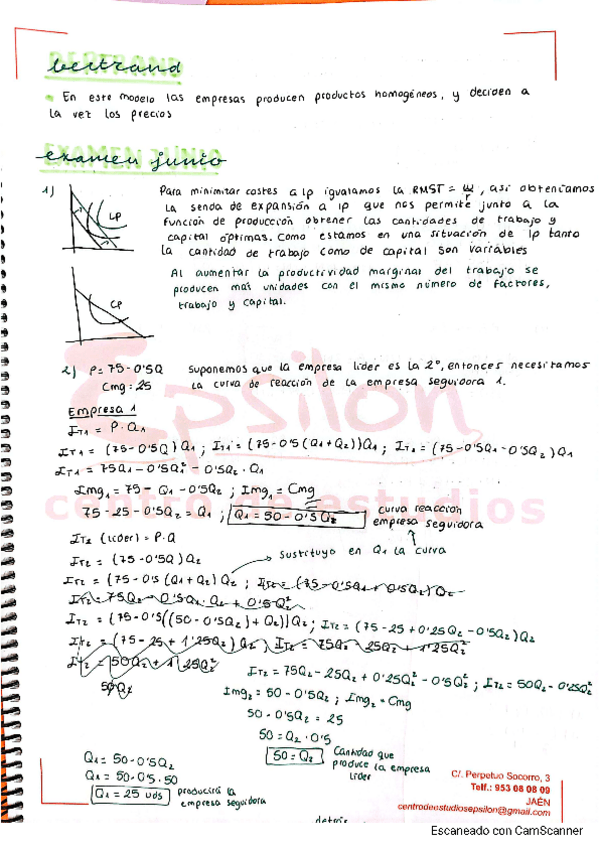 bertrand
En este modelo las empresas producen productos homogéneos, y deciden a
la vez los precios
examen junio
1)
LP
Para minimizar costes a lp igualamos la RMST = w/r, así obtenríamos
la senda de expansión a lp que nos permite junto a la
función de producción obtener las cantidades de trabajo y
capital óptimas. Como estamos en una situación de lp tanto
la cantidad de trabajo como de capital son variables
CP
Al aumentar la productividad marginal del trabajo se
producen más unidades con el mismo número de factores,
trabajo y capital.
Epsilon
centro de estudios
2) P = 75 - 0'5Q
Cmg = 25
Suponemos que la empresa líder es la 2º, entonces necesitamos
la curva de reacción de la empresa seguidora 1.
Empresa 1
IT1 = P·Q1
IT1 = (75-0'5Q)Q1 ; IT1 = (75-0'5(Q1+Q2))Q1 ; IT1 = (75-0'5Q1-0'5Q2)Q1
IT1 = 75Q1 - 0'5Q1² - 0'5Q2·Q1
Img1 = 75 - Q1 - 0'5Q2 ; Img1 = Cmg
75 - 25 - 0'5Q2 = Q1 ; Q1 = 50 - 0'5Q2
curva reacción
empresa seguidora
IT2 (líder) = P·Q
IT2 = (75-0'5Q)Q2
sustituyo en Q1 la curva
IT2 = (75-0'5(Q1+Q2)Q2 ; IT2 = (75-0'5Q1+0'5Q2)Q2
IT2 = 75Q2 - 0'5Q1·Q2 + 0'5Q2²
IT2 = (75-0'5((50-0'5Q2)+Q2))Q2 ; IT2 = (75-25+0'25Q2-0'5Q2)Q2
IT2 = (75-25+1'25Q2)Q2 ; IT2 = 75Q2 25Q2 + 1'25Q2²
IT2 = 50Q2 + 1'25Q2²
50Q2
IT2 = 75Q2 - 25Q2 + 0'25Q2² - 0'5Q2² ; IT2 = 50Q2 - 0'25Q2²
Img2 = 50 - 0'5Q2 ; Img2 = Cmg
50 - 0'5Q2 = 25
50 = Q2·0'5
50 = Q2
Cantidad que
produce la empresa
líder
Q1 = 50 - 0'5Q2
Q1 = 50 - 0'5·50
Q1 = 25 uds
producirá la
empresa seguidora
C/. Perpetuo Socorro, 3
Telf.: 953 08 08 09
JAÉN
centrodeestudiosepsilon@gmail.com
detrás
Escaneado con CamScanner